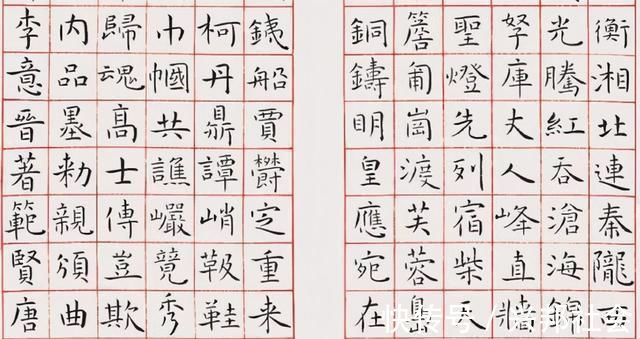 衡湘北連秦隴
光騰紅吞滄海
孥庫丈人峰直
聖燈先列宿柴天
匍崗渡芙蓉島
銅鑄明皇應宛在
鐵船賈欝定重来
柯丹鼎譚峭靸鞋
巾幗共譙巖竟秀
歸魂高士傳豈欺
内品墨勅親頒曲
李意晉著範賢唐
快传号